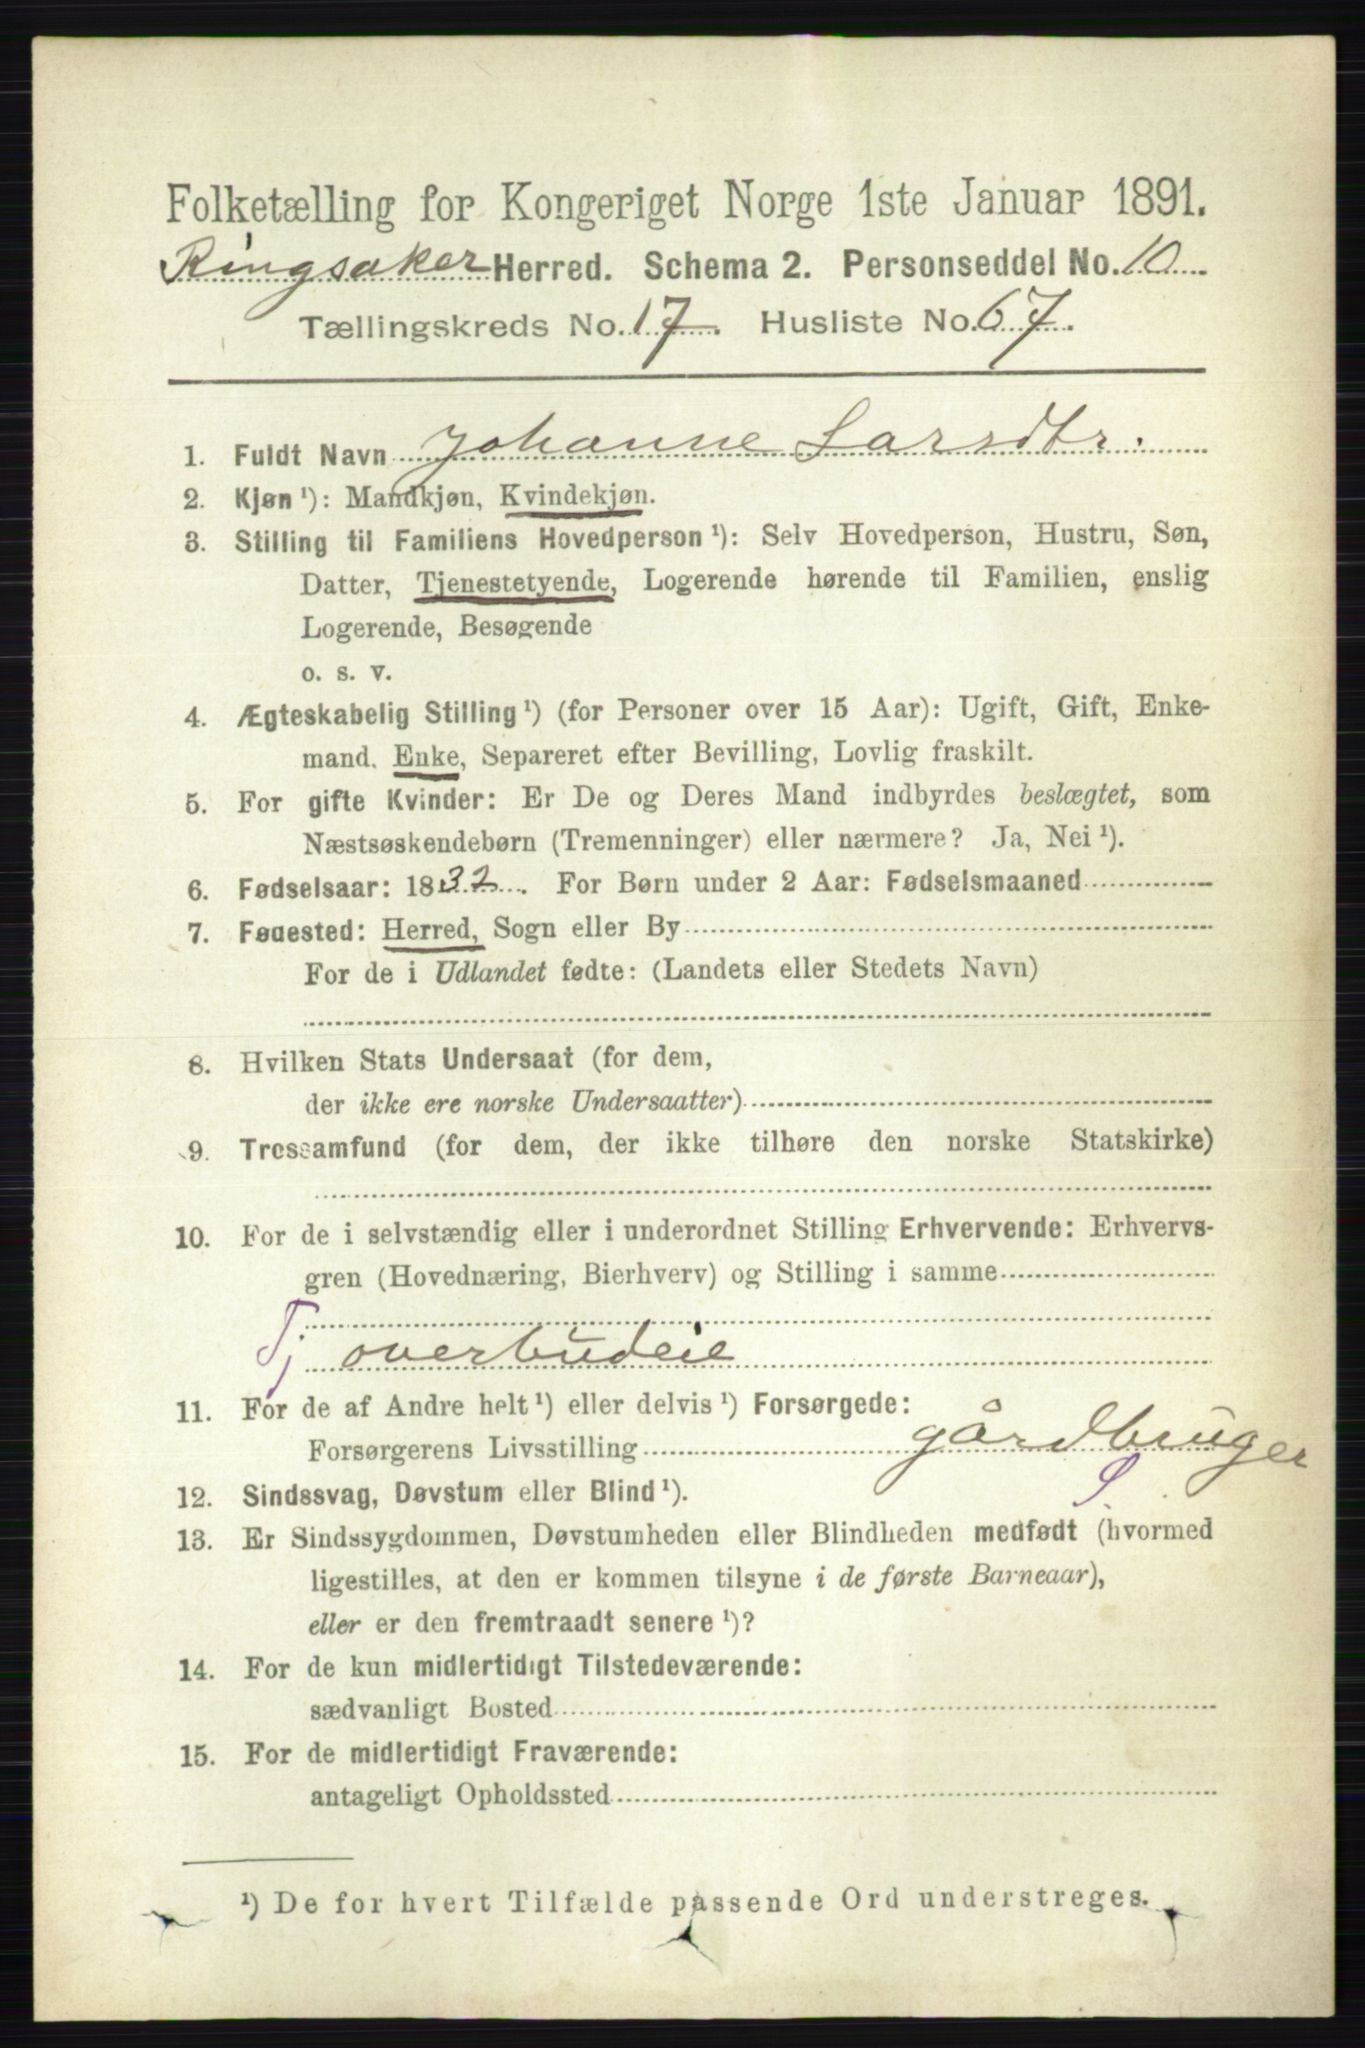 Folketælling for Kongeriget Norge 1ste Januar 1891.
Ringsaker Herred. Schema 2. Personseddel No. 10
Tællingskreds No. 17. Husliste No. 67.
1. Fuldt Navn Johanne Larsdtr.
2. Kjøn ¹): Mandkjøn, Kvindekjøn.
3. Stilling til Familiens Hovedperson ¹): Selv Hovedperson, Hustru, Søn,
Datter, Tjenestetyende, Logerende hørende til Familien, enslig
Logerende, Besøgende
o. s. v.
4. Ægteskabelig Stilling ¹) (for Personer over 15 Aar): Ugift, Gift, Enke-
mand, Enke, Separeret efter Bevilling, Lovlig fraskilt.
5. For gifte Kvinder: Er De og Deres Mand indbyrdes beslægtet, som
Næstsøskendebørn (Tremenninger) eller nærmere? Ja, Nei ¹).
6. Fødselsaar: 1832. For Børn under 2 Aar: Fødselsmaaned
7. Fødested: Herred, Sogn eller By
For de i Udlandet fødte: (Landets eller Stedets Navn)
8. Hvilken Stats Undersaat (for dem,
der ikke ere norske Undersaatter)
9. Trossamfund (for dem, der ikke tilhøre den norske Statskirke)
10. For de i selvstændig eller i underordnet Stilling Erhvervende: Erhvervs-
gren (Hovednæring, Bierhverv) og Stilling i samme
Tj overbudeie
11. For de af Andre helt ¹) eller delvis ¹) Forsørgede:
Forsørgerens Livsstilling gårdbruger
12. Sindssvag, Døvstum eller Blind ¹).
13. Er Sindssygdommen, Døvstumheden eller Blindheden medfødt (hvormed
ligestilles, at den er kommen tilsyne i de første Barneaar),
eller er den fremtraadt senere ¹)?
14. For de kun midlertidigt Tilstedeværende:
sædvanligt Bosted
15. For de midlertidigt Fraværende:
antageligt Opholdssted
¹) De for hvert Tilfælde passende Ord understreges.